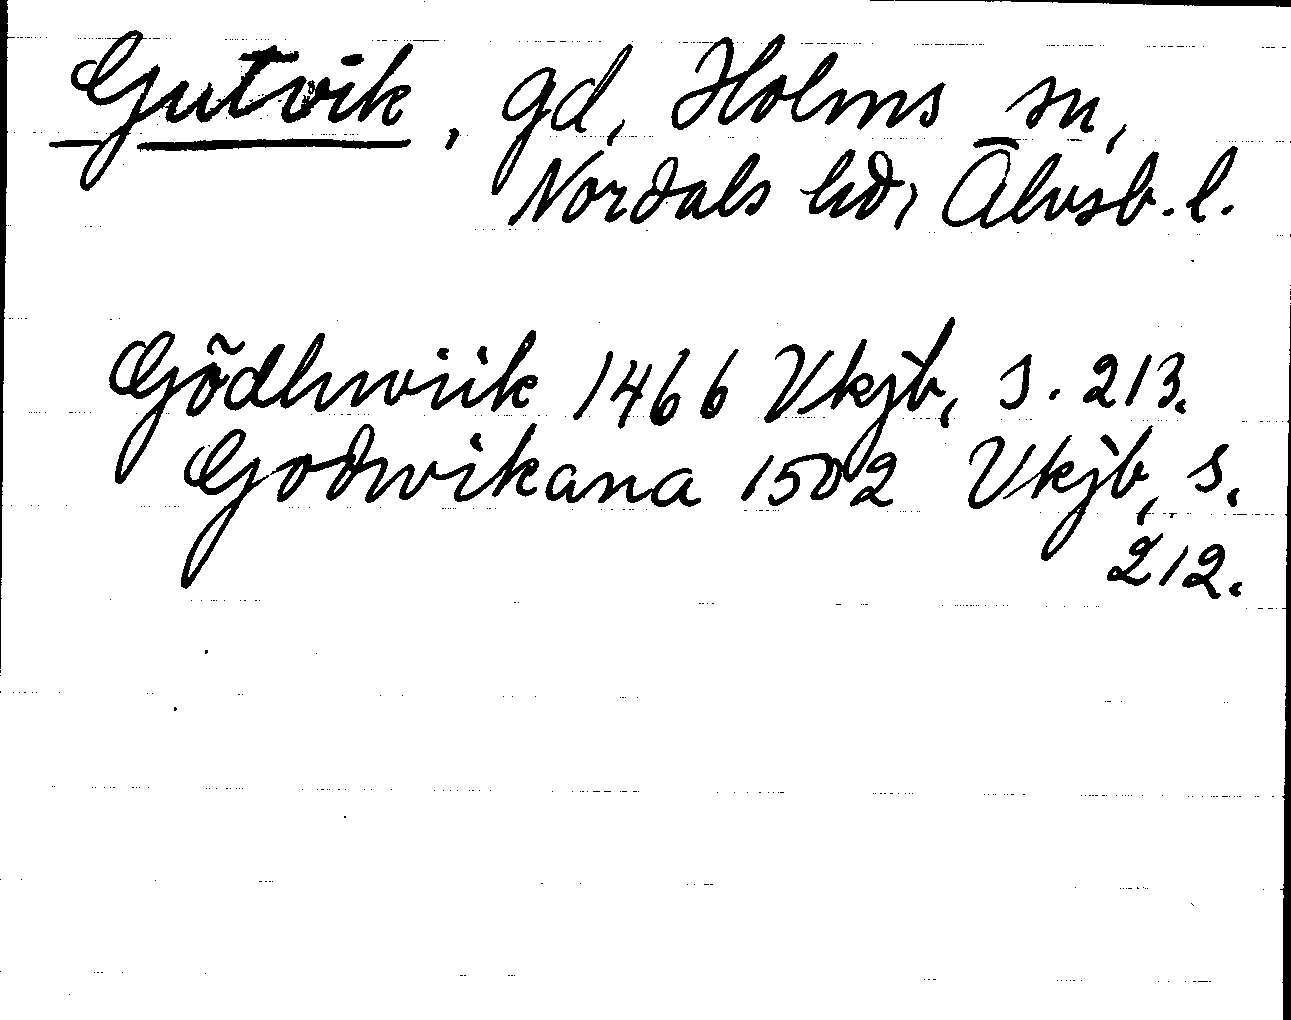 Gutvik, gd, Holms sn,
Nordals hd, Älvsb. l.
Gödhwiik 1466 Vkjb, s. 213.
Godwikana 1502 Vkjb, s.
212.